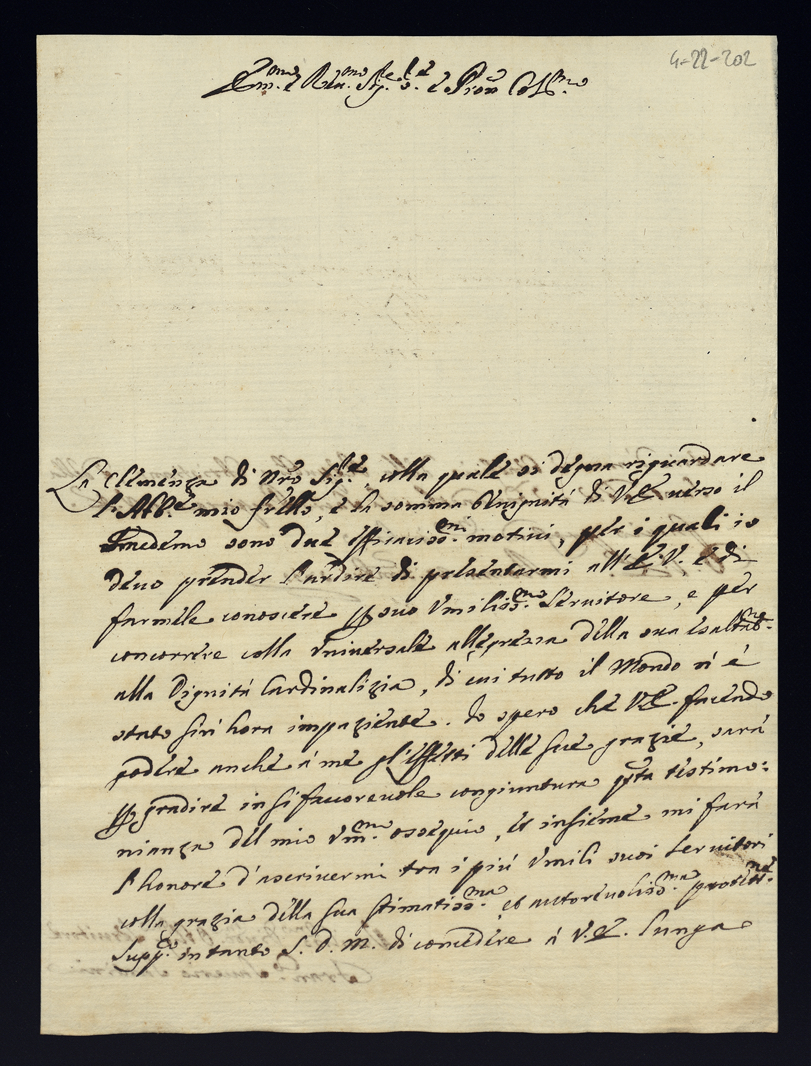 4-22-202
Em.mo e Reu.mo Sig.re e Pron Col.mo
La Clemenza di Nro Sig.re, colla quale si degna riguardare
l'Abb.e mio frello, e la somma benignità di V.E. uerso il
medemo sono due efficaciss.mi motiui, per i quali io
deuo prender l'ardire di presentarmi all'E.V. e di
farmele conoscere p suo Vmiliss.mo Seruitore, e per
concorrere colla Vniuersale allegrezza della sua esaltat.ne
alla Dignità Cardinalizia, di cui tutto il Mondo n'è
stato sin'hora impaziente. Io spero che V.E. facendo
godere anche à me gl'effetti delle sue grazie, sarà
p gradire in si fauoreuole congiuntura qta testimo:
nianza del mio Vm.mo ossequio, et insieme mi farà
l'honore d'ascriuermi tra i più Vmili suoi Seruitori
colla grazia della sua stimatiss.ma et autoreuoliss.ma protett.ne
Supp.co intanto S. D. M. di concedere à V.E. lunga